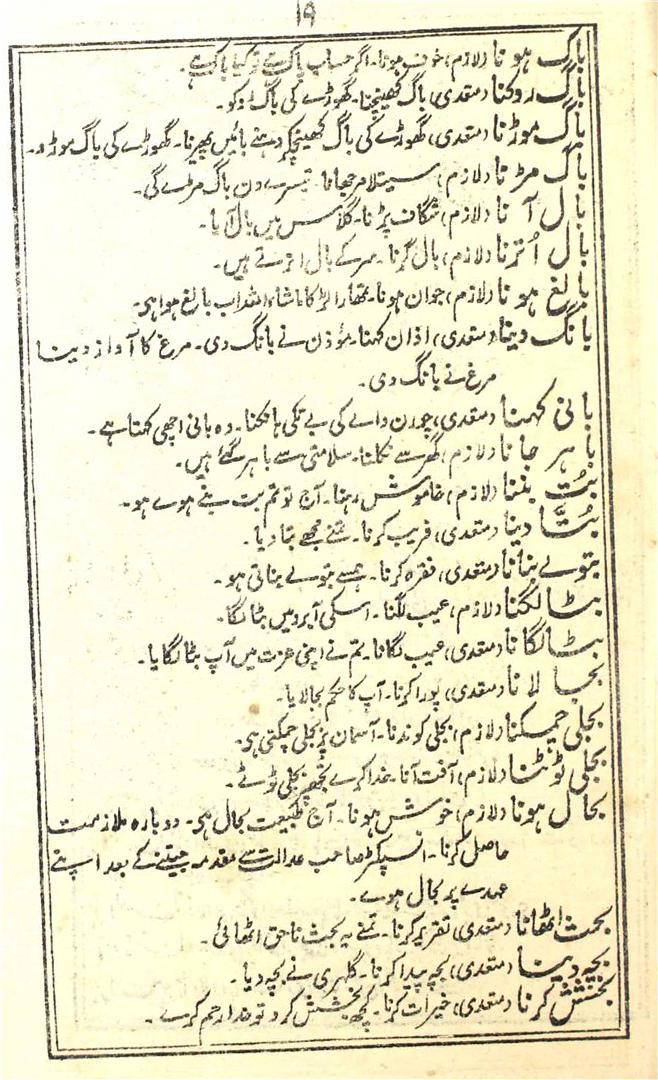 ۱۹
باک ہونا (لازم) خوف ہونا۔ اگر حساب پاک ہے تو کیا باک ہے۔
باگ روکنا (متعدی) باگ کھینچنا۔ گھوڑے کی باگ روکو۔
باگ موڑنا (متعدی) گھوڑے کی باگ کھینچکر دہنے بائیں پھیرنا۔ گھوڑے کی باگ موڑو۔
باگ مڑنا (لازم) سیتلا مرجھانا۔ تیسرے دن باگ مڑے گی۔
بال آنا (لازم) شگاف پڑنا۔ گلاس میں بال آیا۔
بال اُترنا (لازم) بال گرنا۔ سر کے بال اترتے ہیں۔
بالغ ہونا (لازم) جوان ہونا۔ تمھارا لڑکا ماشاء اللہ اب بالغ ہوا ہی۔
بانگ دینا (متعدی) اذان کہنا۔ مؤذن نے بانگ دی۔ مرغ کا آواز دینا
مرغ نے بانگ دی۔
بانی کہنا (متعدی) چورن والے کی بے تکی ہانکنا۔ وہ بانی اچھی کہتا ہے۔
باہر جانا (لازم) گھر سے نکلنا۔ سلامتی سے باہر گئے ہیں۔
بُت بننا (لازم) خاموش رہنا۔ آج تو تم بت بنے ہوے ہو۔
بُتَّا دینا (متعدی) فریب کرنا۔ تمنے مجھے بتا دیا۔
بتولے بنانا (متعدی) فقرہ کرنا۔ ہمسے بتولے بناتی ہو۔
بٹا لگنا (لازم) عیب لگنا۔ اسکی آبرو میں بٹا لگا۔
بٹا لگانا (متعدی) عیب لگانا۔ تم نے اپنی عزت میں آپ بٹا لگایا۔
بجا لانا (متعدی) پورا کرنا۔ آپ کا حکم بجا لایا۔
بجلی چمکنا (لازم) بجلی کوندنا۔ آسمان پر بجلی چمکتی ہی۔
بجلی ٹوٹنا (لازم) آفت آنا۔ خدا کرے تجھپر بجلی ٹوٹے۔
بحال ہونا (لازم) خوش ہونا۔ آج طبیعت بحال ہی۔ دوبارہ ملازمت
حاصل کرنا۔ انسپکٹر صاحب عدالت سے مقدمہ جیتنے کے بعد اپنے
عہدے پر بحال ہوے۔
بحث اٹھانا (متعدی) تقریر کرنا۔ تمنے یہ بحث ناحق اٹھائی۔
بچہ دینا (متعدی) بچہ پیدا کرنا۔ گلہری نے بچہ دیا۔
بخشش کرنا (متعدی) خیرات کرنا۔ کچھ بخشش کرو تو خدا رحم کرے۔